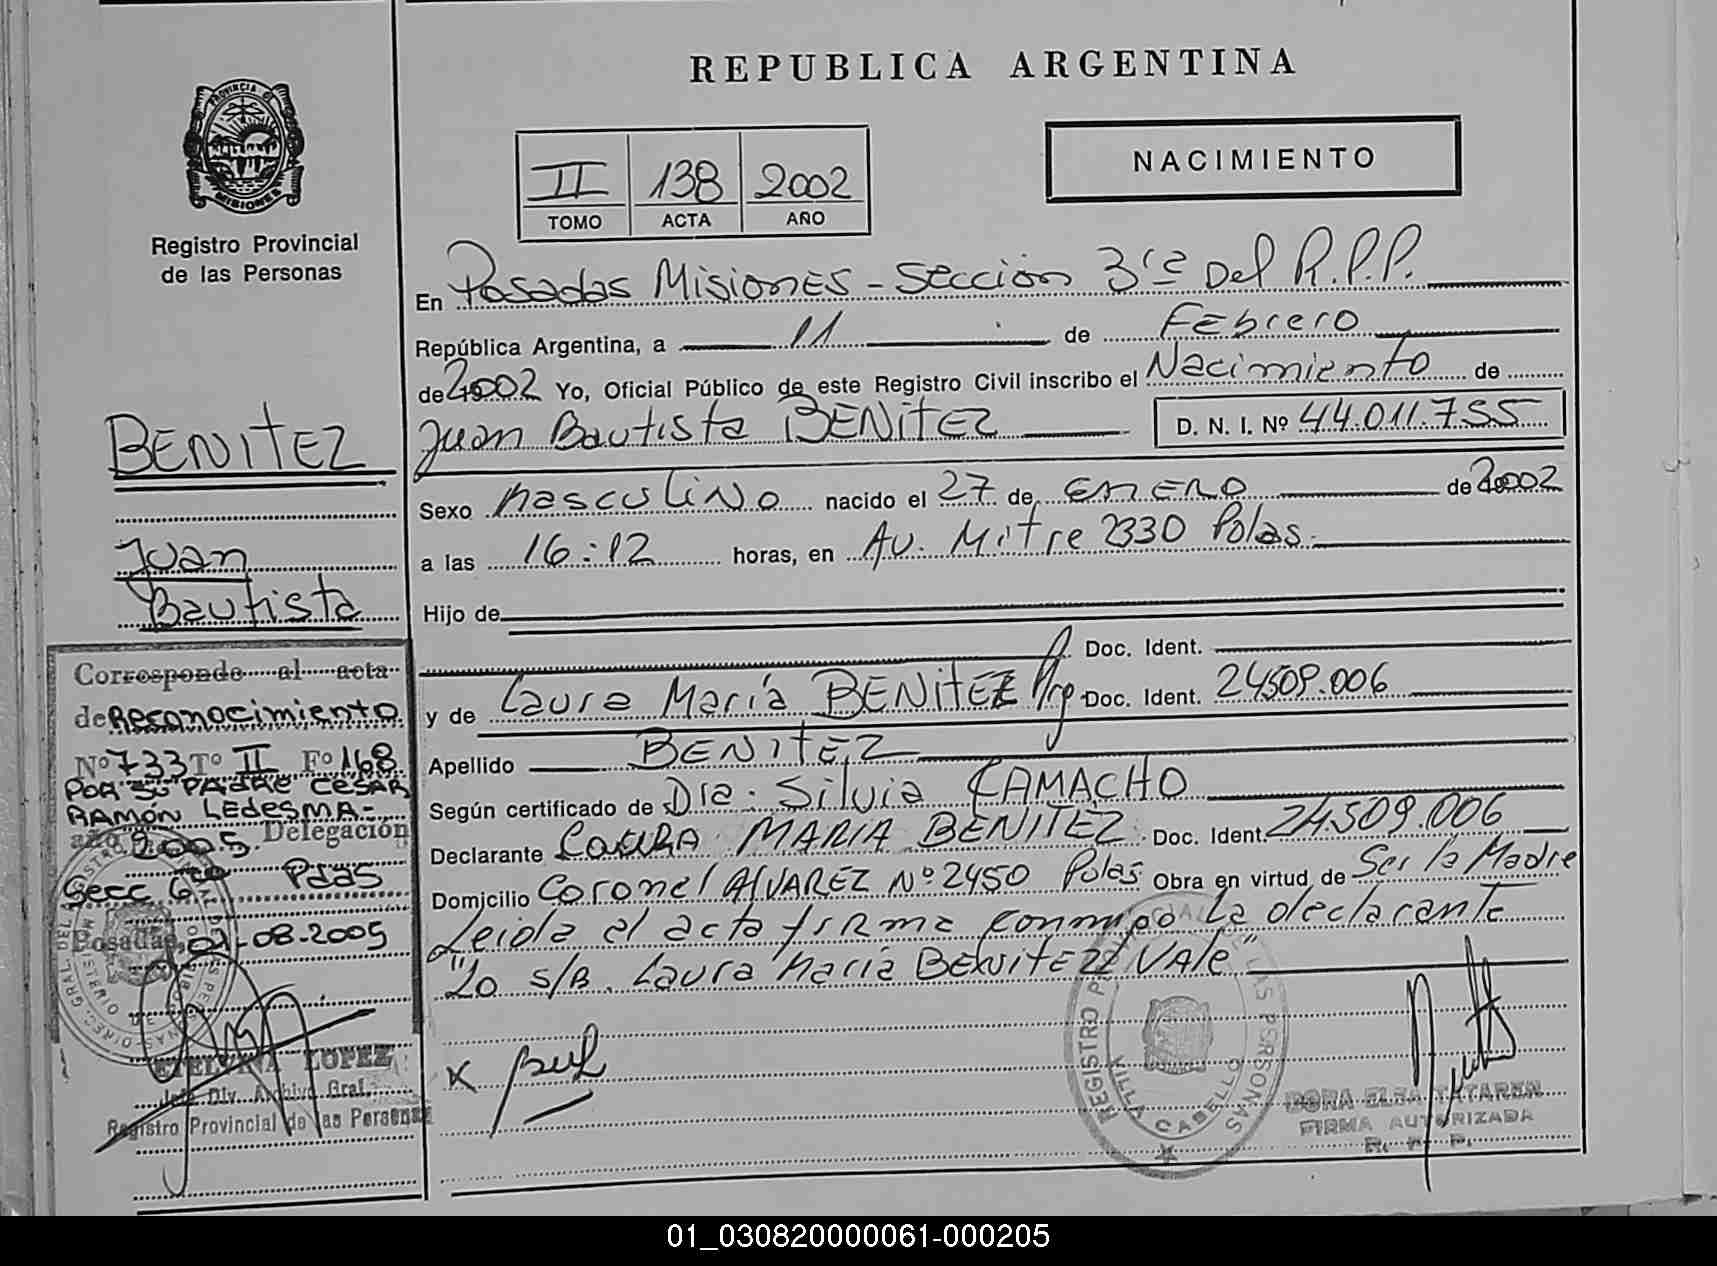 REPUBLICA ARGENTINA
PROVINCIA DE
MISIONES
Registro Provincial
de las Personas
II 138 2002
TOMO ACTA AÑO
NACIMIENTO
En Posadas Misiones - Sección 3ra Del R.P.P.
República Argentina, a 11 de Febrero
de 2002 Yo, Oficial Público de este Registro Civil inscribo el Nacimiento de
Juan Bautista BENITEZ D. N. I. Nº 44.011.755
Sexo Masculino nacido el 27 de ENERO de 2002
a las 16:12 horas, en Av. Mitre 2330 Pdas.
Hijo de
Doc. Ident.
y de Laura María BENITEZ Arg. Doc. Ident. 24509.006
Apellido BENITEZ
Según certificado de Dra. Silvia CAMACHO
Declarante LAURA MARIA BENITEZ Doc. Ident. 24.509.006
Domicilio Coronel ALVAREZ Nº 2450 Pdas Obra en virtud de Ser la Madre
Leida el acta firma conmigo La declarante
"Lo s/B. Laura María BENITEZ VAle"
x
BENITEZ
Juan
Bautista
Corresponde al acta
de Reconocimiento
Nº 733 Tº II Fº 168
POR SU PADRE CESAR
RAMÓN LEDESMA-
año 2005. Delegación
Secc. 6ta Pdas
Posadas, 01-08-2005
ETELVINA LOPEZ
Jefe Div. Archivo Gral.
Registro Provincial de las Personas
REGISTRO PROVINCIAL DE LAS PERSONAS
VILLA CABELLO
DORA ELSA TATAREN
FIRMA AUTORIZADA
R. P. P.
01_030820000061-000205